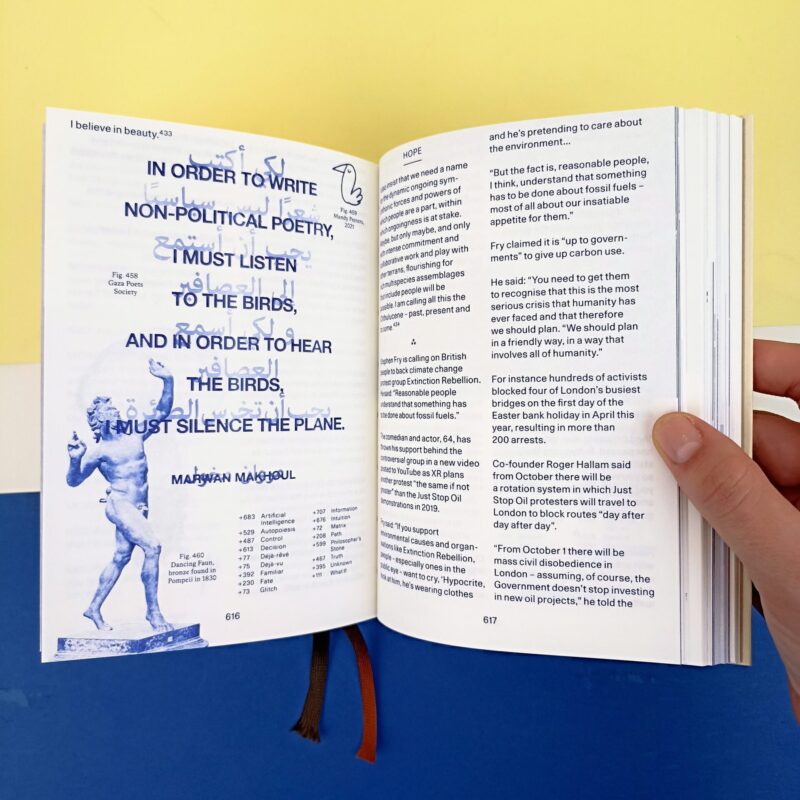 I believe in beauty.⁴³³
لكي أكتب
IN ORDER TO WRITE
شعرًا ليس سياسيًا
NON-POLITICAL POETRY,
يجب أن أستمع
I MUST LISTEN
إلى العصافير
TO THE BIRDS,
و لكي أسمع
AND IN ORDER TO HEAR
العصافير
THE BIRDS,
يجب أن تخرس الطائرة
I MUST SILENCE THE PLANE.
مروان مخول
MARWAN MAKHOUL
Fig. 459
2021
Fig. 458
Gaza Poets
Society
Fig. 460
Dancing Faun,
bronze found in
Pompeii in 1830
+683 Artificial
Intelligence
+529 Autopoiesis
+487 Control
+613 Decision
+77 Déjà-rêvé
+75 Déjà-vu
+392 Familiar
+230 Fate
+73 Glitch
+707 Information
+676 Intuition
+72 Matrix
+208 Path
+599 Philosopher's
Stone
+467 Truth
+395 Unknown
+111 What If
616
HOPE
insist that we need a name
the dynamic ongoing sym-
forces and powers of
which people are a part, within
which ongoingness is at stake.
but only maybe, and only
intense commitment and
collaborative work and play with
other terrans, flourishing for
multispecies assemblages
include people will be
I am calling all this the
– past, present and
to come.⁴³⁴
Stephen Fry is calling on British
people to back climate change
protest group Extinction Rebellion.
"Reasonable people
understand that something has
to be done about fossil fuels."
The comedian and actor, 64, has
thrown his support behind the
controversial group in a new video
posted to YouTube as XR plans
another protest "the same if not
than the Just Stop Oil
demonstrations in 2019.
Fry said: "If you support
environmental causes and organ-
isations like Extinction Rebellion,
people – especially ones in the
public eye – want to cry, 'Hypocrite,
look at him, he's wearing clothes
and he's pretending to care about
the environment…
"But the fact is, reasonable people,
I think, understand that something
has to be done about fossil fuels –
most of all about our insatiable
appetite for them."
Fry claimed it is "up to govern-
ments" to give up carbon use.
He said: "You need to get them
to recognise that this is the most
serious crisis that humanity has
ever faced and that therefore
we should plan. "We should plan
in a friendly way, in a way that
involves all of humanity."
For instance hundreds of activists
blocked four of London's busiest
bridges on the first day of the
Easter bank holiday in April this
year, resulting in more than
200 arrests.
Co-founder Roger Hallam said
from October there will be
a rotation system in which Just
Stop Oil protesters will travel to
London to block routes "day after
day after day".
"From October 1 there will be
mass civil disobedience in
London – assuming, of course, the
Government doesn't stop investing
in new oil projects," he told the
617